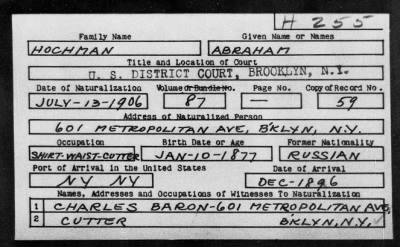 H 255
Family Name Given Name or Names
HOCHMAN ABRAHAM
Title and Location of Court
U. S. DISTRICT COURT, BROOKLYN, N.Y.
Date of Naturalization Volume or Bundle No. Page No. Copy of Record No.
JULY-13-1906 87 — 59
Address of Naturalized Person
601 METROPOLITAN AVE, B'KLYN, N.Y.
Occupation Birth Date or Age Former Nationality
SHIRT-WAIST-CUTTER JAN-10-1877 RUSSIAN
Port of Arrival in the United States Date of Arrival
NY NY DEC-1896
Names, Addresses and Occupations of Witnesses To Naturalization
1 CHARLES BARON-601 METROPOLITAN AVE,
2 CUTTER B'KLYN, N.Y.